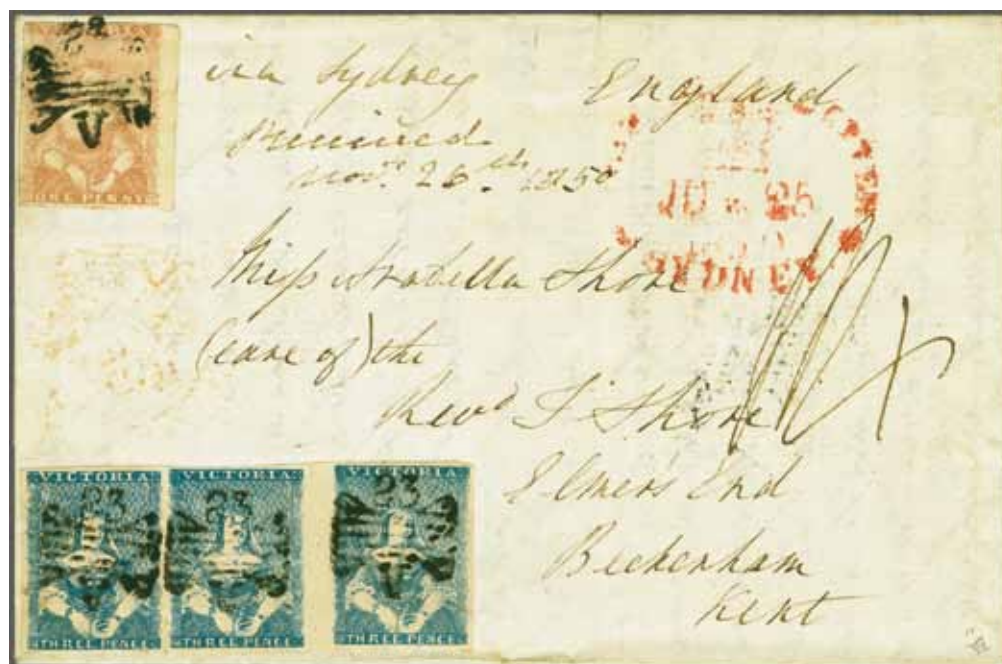 via Sydney
England
Received
Novr. 26th. 1850
JU 25
SYDNEY
Miss Arabella Shore
(care of) the
Revd T Shore
Elmers End
Beckenham
Kent
ONE PENNY
VICTORIA VICTORIA VICTORIA
23 23 23
V V V
THREE PENCE THREE PENCE THREE PENCE